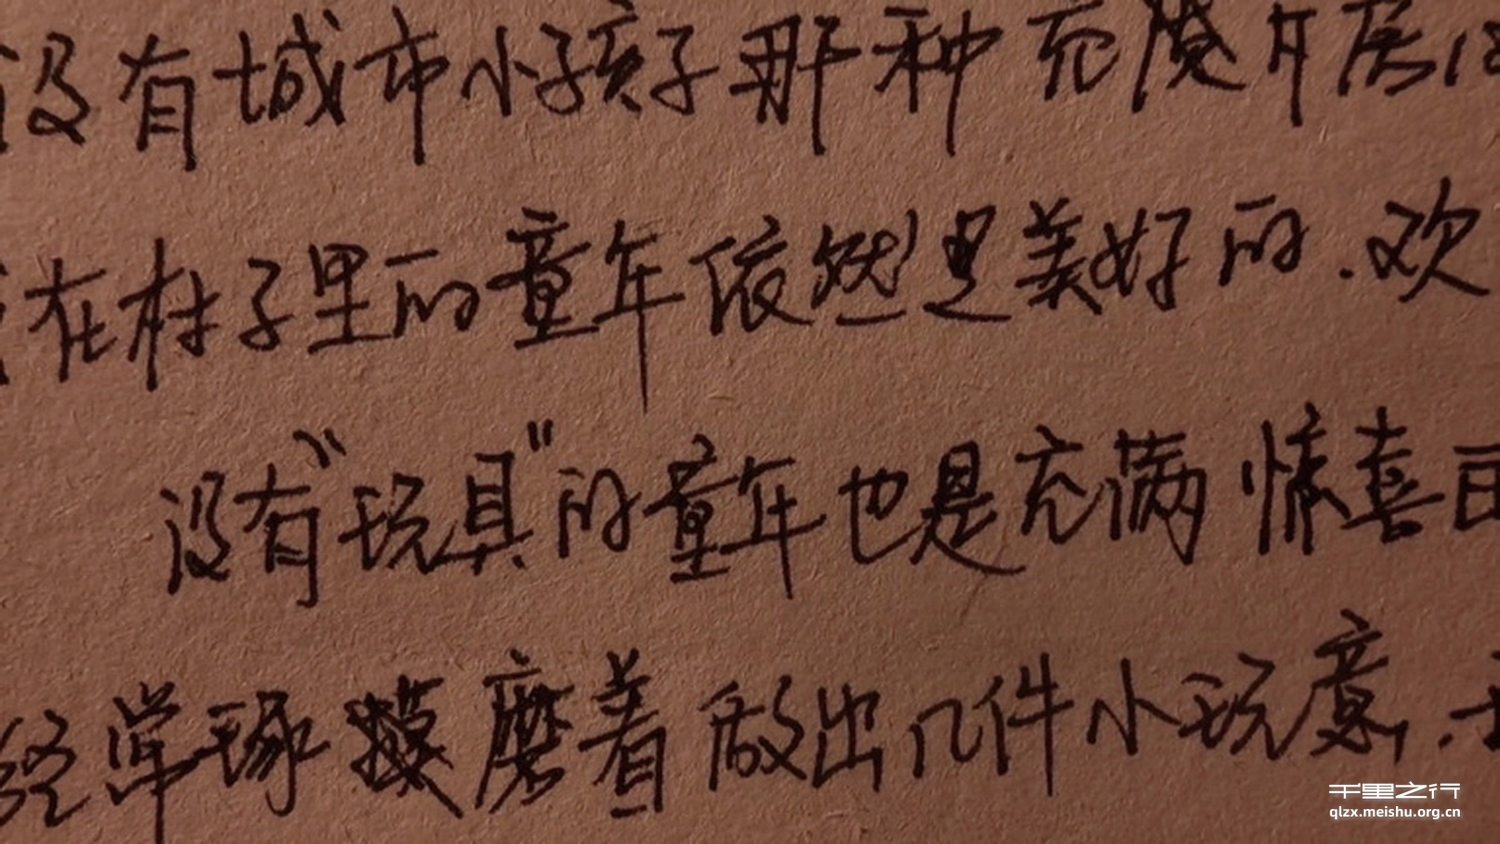 没有城市小孩子那种充
在村子里的童年依然是美好的.欢
没有"玩具"的童年也是充满惊喜
经常琢摸磨着做出几件小玩意,
千里之行
qlzx.meishu.org.cn